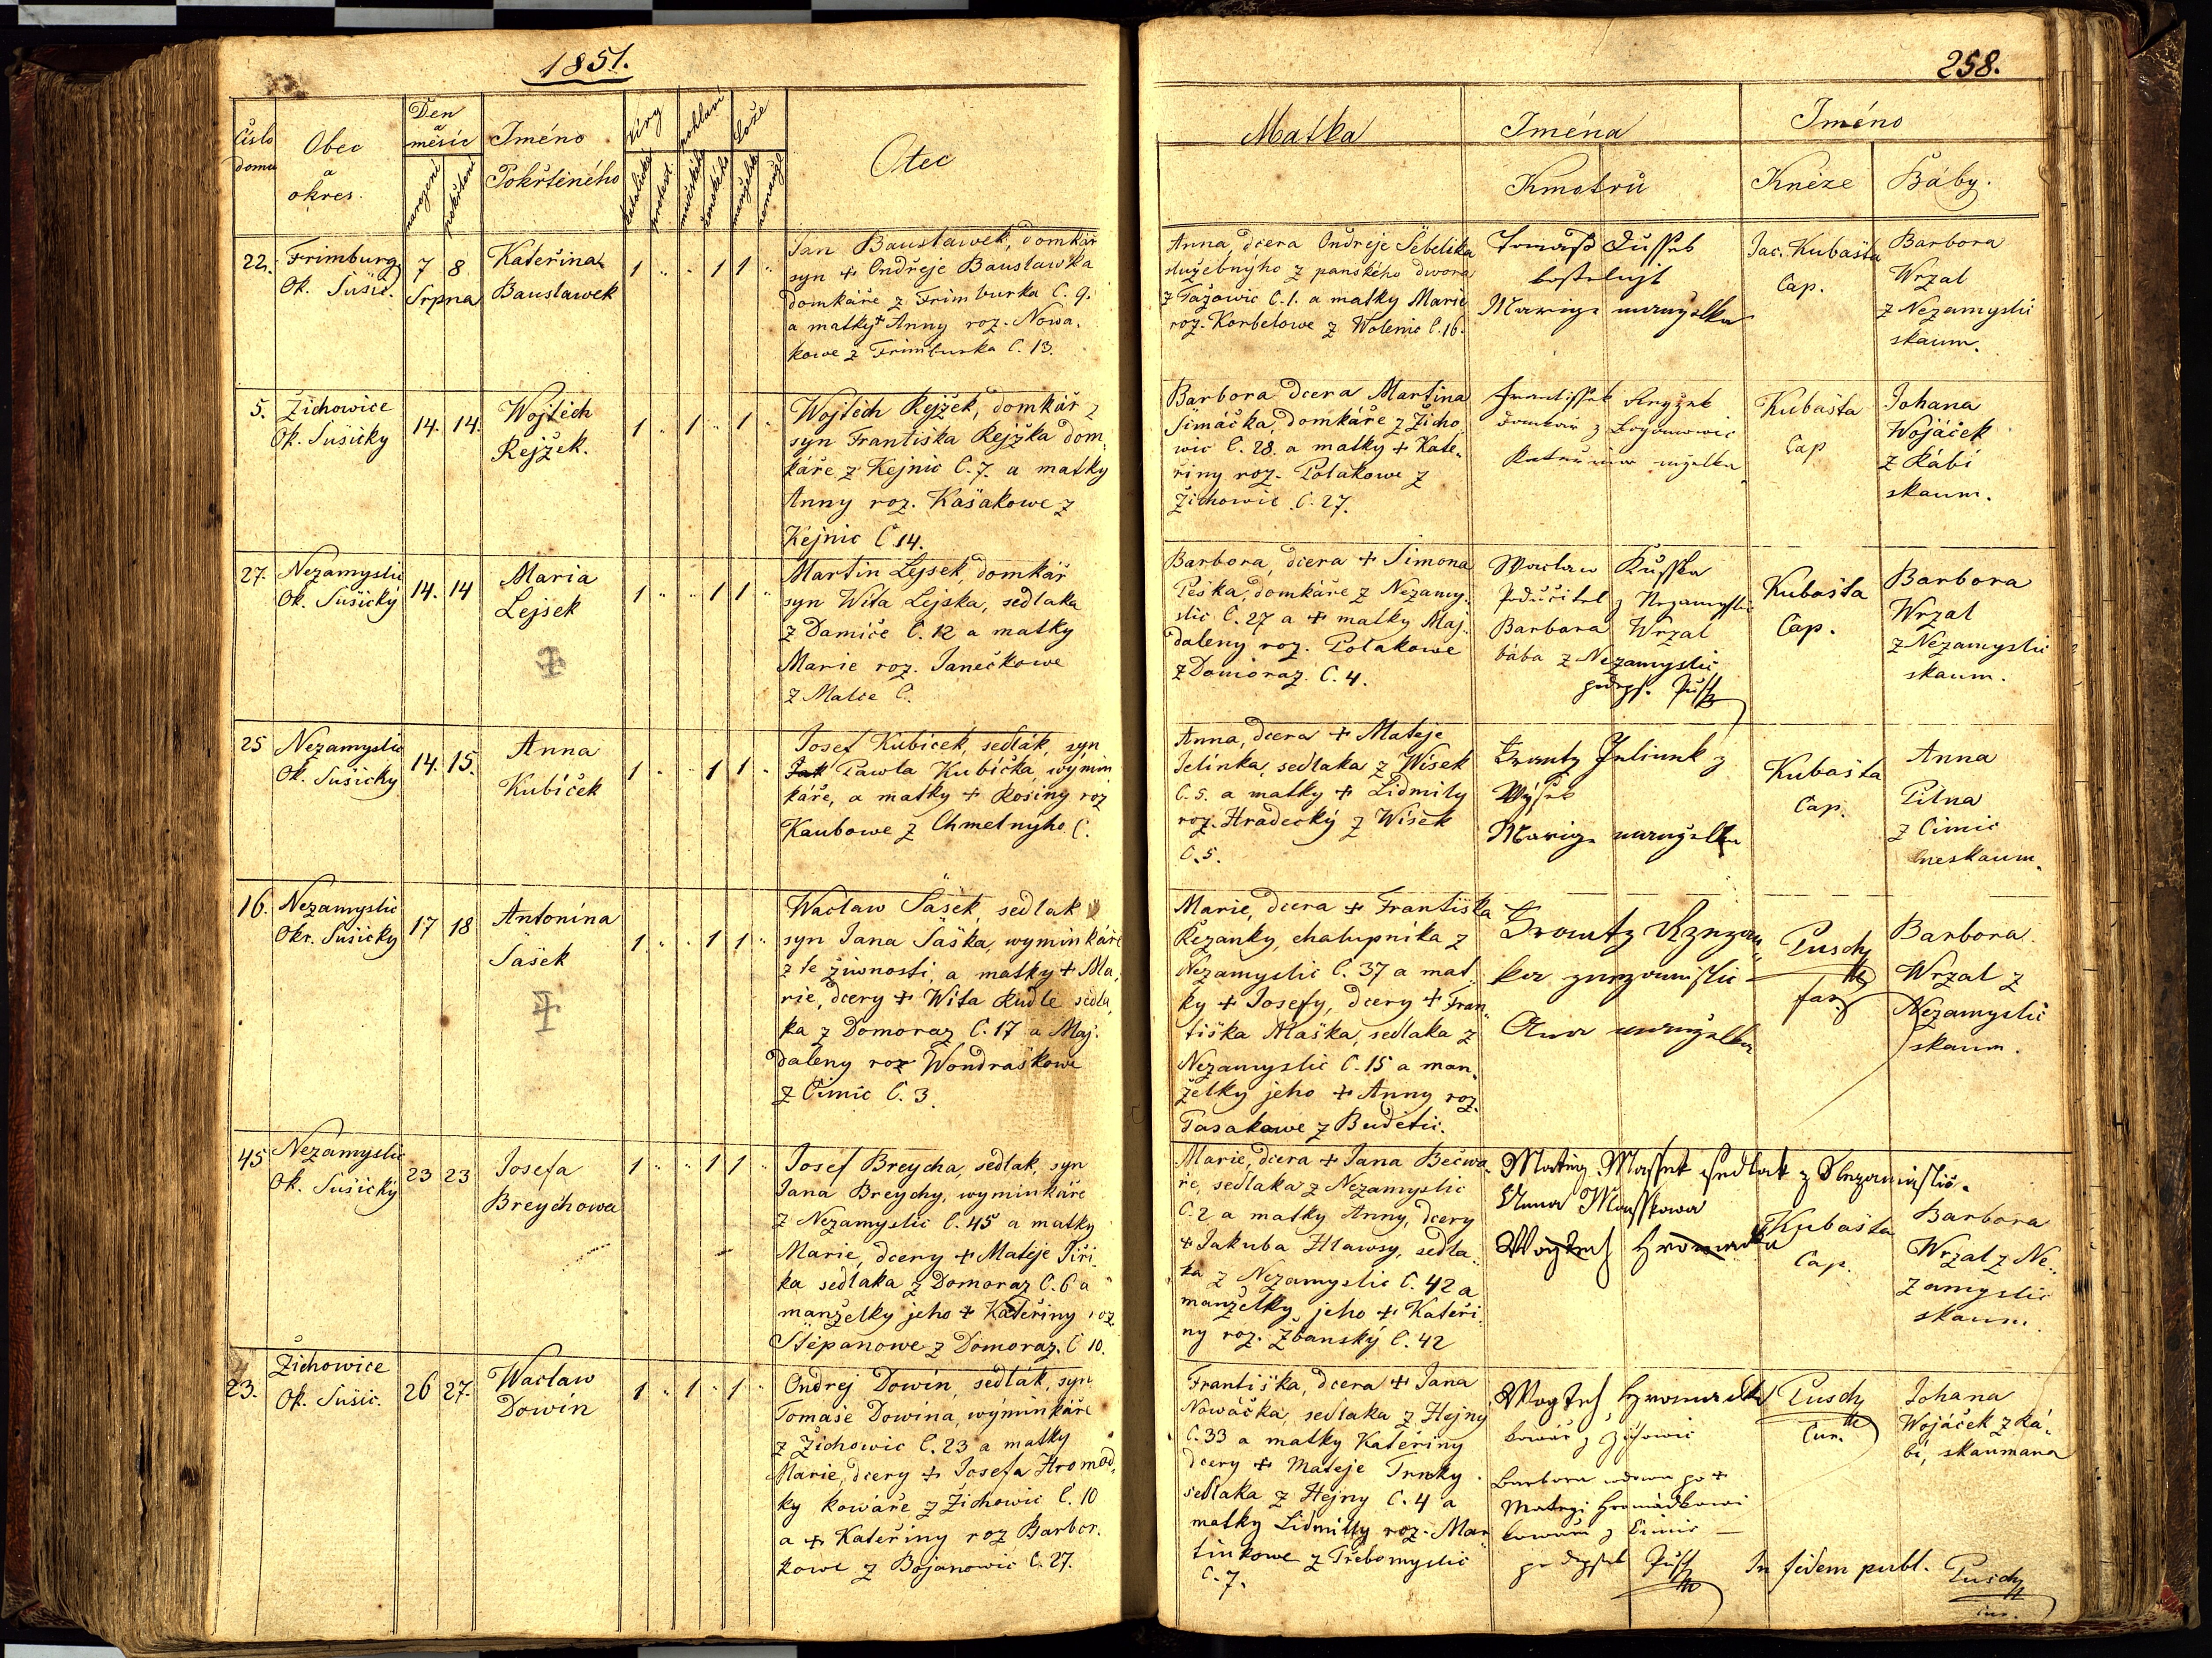 1851.
258.
Čislo domu
Obec a okres.
Den a měsíc
narození
pokřtění
Jméno Pokřtěného
Víry
katolické
protest.
pohlaví
mužského
ženského
Lože
manželské
nemanžel.
Otec
Matka
Jména Kmotrů
Jméno
Kněze
Báby.
22. Frimburg
Ok. Sušic.
7 8
Srpna
Kateřina
Bauslawek
1 " " 1 1 "
Jan Bauslawek, domkář
syn + Ondřeje Bauslawka
domkáře z Frimburka C. 9.
a matky + Anny roz. Nowa-
kowe z Frimburka C. 13.
Anna, dcera Ondřeje Šebelika
služebnýho z panského dwora
z Tažowic C. 1. a matky Marie
roz. Korbelowe z Wolenic C. 16.
Marige manzelka
Jac. Kubašta
Cap.
Barbora
Wrzal
z Nezamyslic
skaum.
5. Žichowice
Ok. Sušicky
14. 14.
Wojtěch
Rejžek.
1 " 1 " 1 "
Wojtěch Rejžek, domkář z
syn Františka Rejžka dom,
káře z Kejnic C. 7. a matky
Anny roz. Kašakowe z
Kejnic C 14.
Barbora dcera Martina
Šimáčka, domkáře z Žicho
wic C. 28. a matky + Kate,
řiny roz. Polakowe z
Žichowic C. 27.
Kubašta
Cap
Johana
Wojáček
z Rábí
skaum.
27. Nezamyslic
Ok. Sušický
14. 14
Maria
Lejsek
+
1 " " 1 1 "
Martin Lejsek, domkář
syn Wíta Lejska, sedlaka
z Damíče C. 12 a matky
Marie roz. Janečkowe
z Malče C.
Barbora, dcera + Simona
Peška, domkáře z Nezamy,
slic C. 27 a + matky Maj.
daleny roz. Polakowe
z Domoraz. C. 4.
Waclaw
Podučitel z Nezamyslic
Barbara Wrzal
bába z Nezamyslic
Kubašta
Cap.
Barbora
Wrzal
z Nezamyslic
skaum.
25 Nezamyslic
Ok. Sušicky
14. 15.
Anna
Kubíček
1 " " 1 1 "
Josef Kubicek, sedlák, syn
Pawla Kubíčka, wymin
káře, a matky + Rosiny roz
Kaubowe z Chmelnyho C.
Anna, dcera + Mateje
Jelínka, sedlaka z Wísek
C. 5. a matky + Lidmily
roz. Hradecký z Wísek
C. 5.
Marige manželka
Kubašta
Cap.
Anna
Pilna
z Cimic
neskaum.
16. Nezamyslic
Okr. Sušicky
17 18
Antonína
Šašek
+
1 " " 1 1 "
Waclaw Šašek, sedlak
syn Jana Šaška, wyminkáře
z té žiwnosti, a matky + Ma,
rie, dcery + Wíta Rudle sedla,
ka z Domoraz C. 17 a Maj.
daleny roz Wondraškowe
z Čimic C. 3.
Marie, dcera + Františka
Řezanky, chalupníka z
Nezamyslic C. 37 a mat
ky + Josefy, dcery + Fran,
tiška Maška, sedlaka z
Nezamyslic C. 15 a man,
želky jeho + Anny roz.
Pasakowe z Budětic.
Pusch
far.
Barbora
Wrzal z
Nezamyslic
skaum.
45 Nezamyslic
Ok. Sušický
23 23
Josefa
Breychowa
1 " " 1 1 "
Josef Breycha, sedlak, syn
Jana Breychy, wyminkáře
z Nezamyslic C. 45 a matky
Marie, dcery + Matěje Jiři,
ka sedlaka z Domoraz C. 6 a
manželky jeho + Kateřiny roz
Štěpanowe z Domoraz. C 10.
Marie, dcera + Jana Bečwa,
ře, sedlaka z Nezamyslic
C. 2 a matky Anny, dcery
+ Jakuba Hlawsy, sedla,
ka z Nezamyslic C. 42 a
manželky jeho + Kateři
ny roz. Žbanský C. 42
Matěg Massek sedlak z Nezamislic.
Anna Masskowa
Kubašta
Cap.
Barbora
Wrzal z Ne,
zamyslic
skaum.
23. Žichowice
Ok. Sušic.
26 27.
Waclaw
Dowín
1 " 1 " 1 "
Ondrej Dowín, sedlák, syn
Tomaše Dowína, wýminkáře
z Žichowic C. 23 a matky
Marie, dcery + Josefa Hromad,
ky kowáře z Žichowic C. 10
a + Kateřiny roz Barbor.
kowe z Bojanowic C. 27.
Františka, dcera + Jana
Nowáčka, sedlaka z Hejny
C. 33 a matky Kateřiny
dcery + Mateje Trnky
sedlaka z Hejny C. 4 a
matky Lidmilly roz. Mar
tinkowe z Třebomyslic
C. 7.
Wogtech Hromadka
kowář z Žichowic
Barbora wdowa po +
Mategi Hromádkowi
kowáři z Čimic —
Pusch
Cur.
Johana
Wojáček z Rá,
bí, skaumana
In fidem publ. Pusch